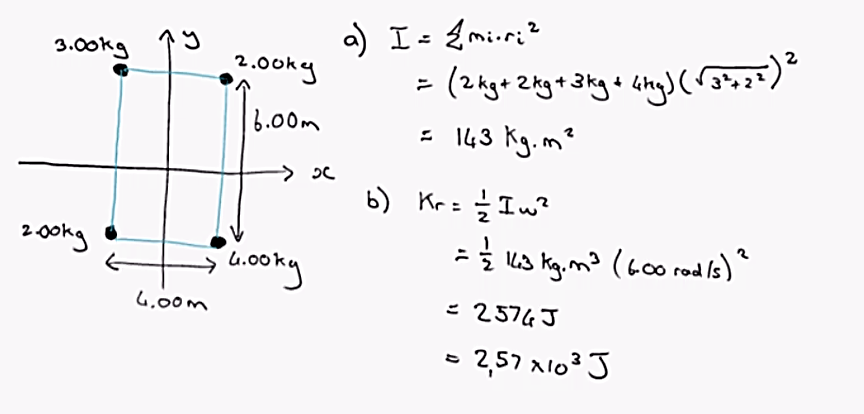 3.00kg
y
2.00kg
6.00m
x
2.00kg
4.00kg
4.00m
a) I = Σmi.ri²
= (2kg+2kg+3kg+4kg)(√3²+2²)²
= 143 kg.m²
b) Kr = ½ Iω²
= ½ 143 kg.m³ (6.00 rad/s)²
= 2574J
= 2,57 x10³ J